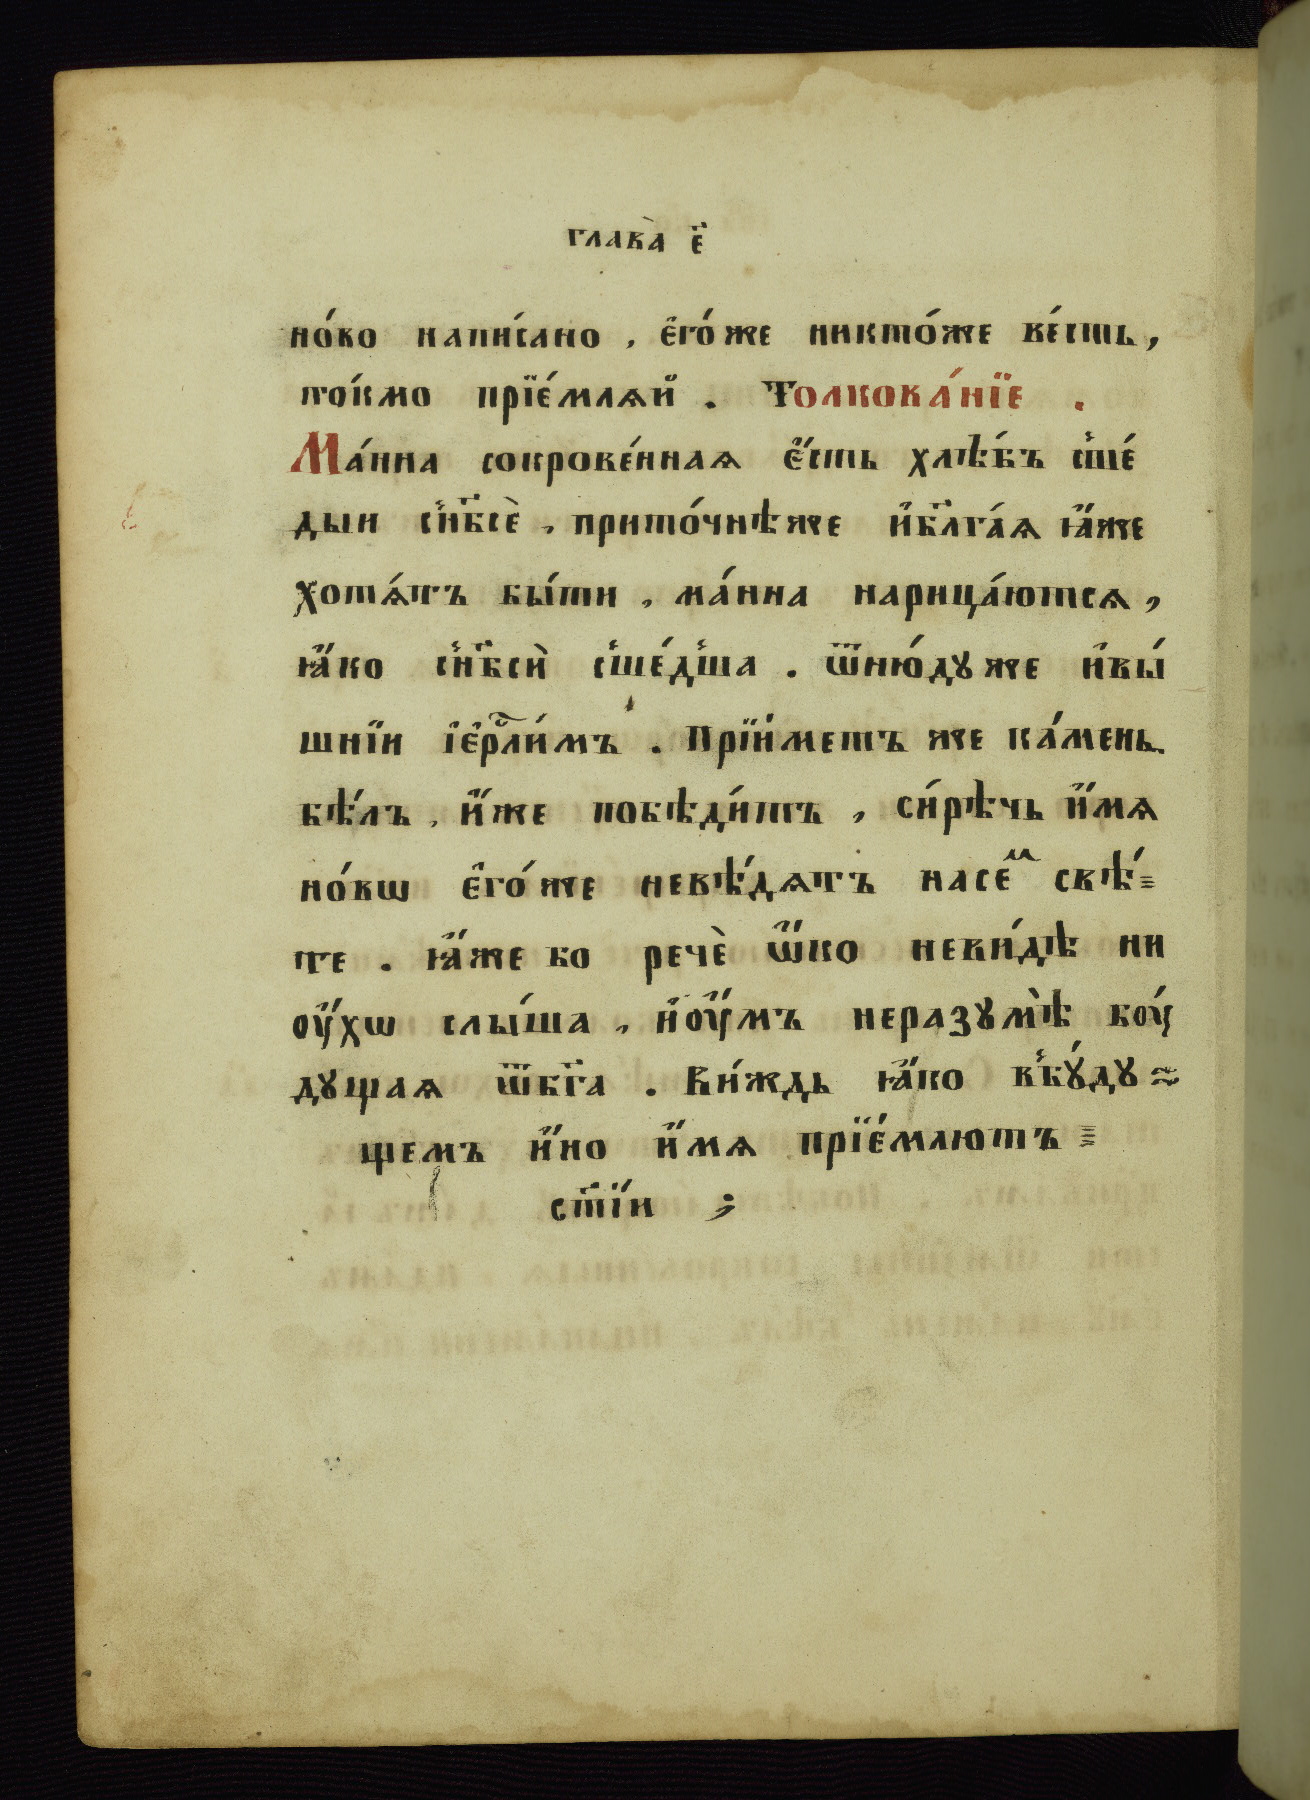 глава̀ є҃
но́во напи́сано , є҆го́же никто́же ве́сть ,
то́кмо прїе́млѧй . Толкова́нїе .
Ма́нна сокрове́ннаѧ є҆́сть хлѣ́бъ сше́
дыи с̾нб҃сѐ , прито́чнѣже и҆бл҃га́ѧ ꙗ҆́же
хотѧ́тъ бы́ти , ма́нна нарица́ютсѧ ,
ꙗ҆́ко с̾нб҃сѝ сше́дша . ѿню́дꙋже и҆вы́
шнїи і҆єрⷭ҇ли́мъ . Прїи́метъ же ка́мень
бѣ́лъ , и҆́же побѣди́тъ , си́рѣчь и҆́мѧ
но́вѡ є҆го́же невѣ́дѧтъ насеⷨ свѣ́
те . ꙗ҆́же бо речѐ ѡ҆́ко неви́дѣ ни
оу҆́хѡ слы́ша , и҆оу҆́мъ неразꙋмѣ̀ боу́
дꙋщаѧ ѿбг҃а . Ви́ждь ꙗ҆́ко в̾бꙋ́дꙋ
щемъ и҆́но и҆́мѧ прїе́млютъ
ст҃і́и ;